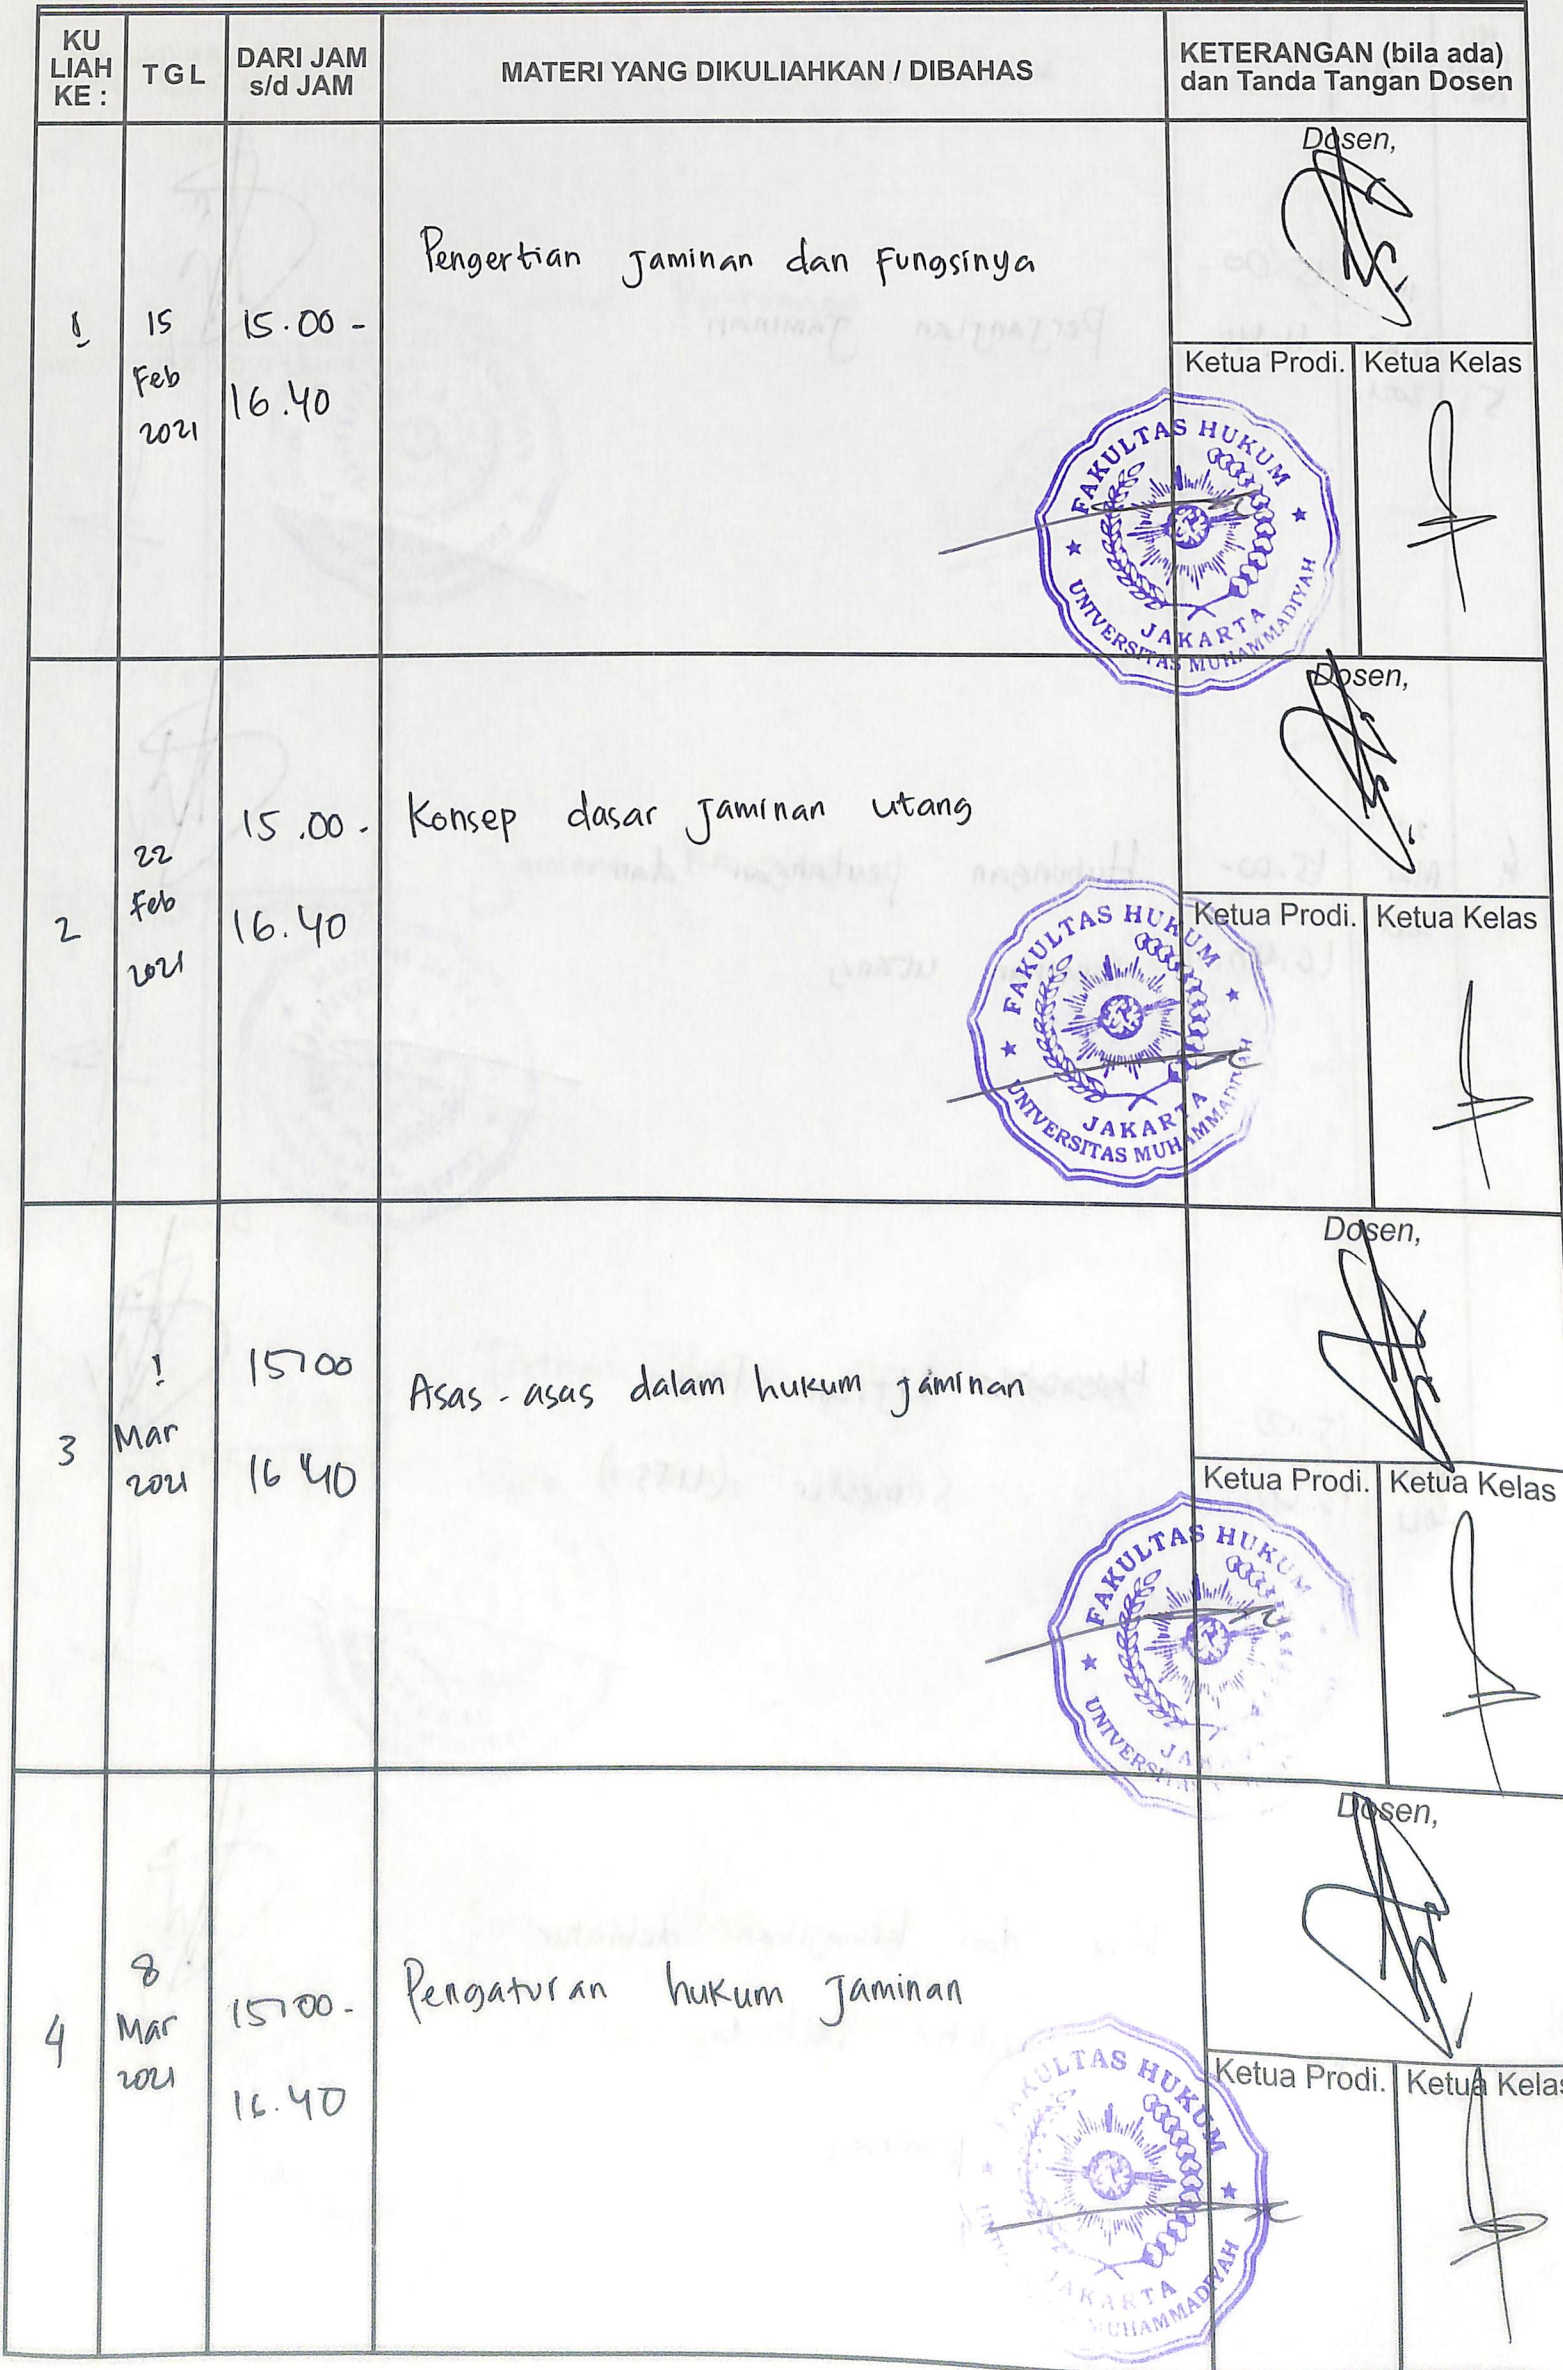 KU LIAH KE :
TGL
DARI JAM s/d JAM
MATERI YANG DIKULIAHKAN / DIBAHAS
KETERANGAN (bila ada) dan Tanda Tangan Dosen
1
15 Feb 2021
15.00 - 16.40
Pengertian Jaminan dan Fungsinya
Dosen,
Ketua Prodi.
Ketua Kelas
FAKULTAS HUKUM
JAKARTA
UNIVERSITAS MUHAMMADIYAH
2
22 Feb 2021
15.00 - 16.40
Konsep dasar Jaminan utang
Dosen,
Ketua Prodi.
Ketua Kelas
FAKULTAS HUKUM
JAKARTA
UNIVERSITAS MUHAMMADIYAH
3
1 Mar 2021
15.00 16.40
Asas - asas dalam hukum jaminan
Dosen,
Ketua Prodi.
Ketua Kelas
FAKULTAS HUKUM
4
8 Mar 2021
15.00 - 16.40
Pengaturan hukum Jaminan
Dosen,
Ketua Prodi.
Ketua Kelas
FAKULTAS HUKUM
JAKARTA
MUHAMMADIYAH